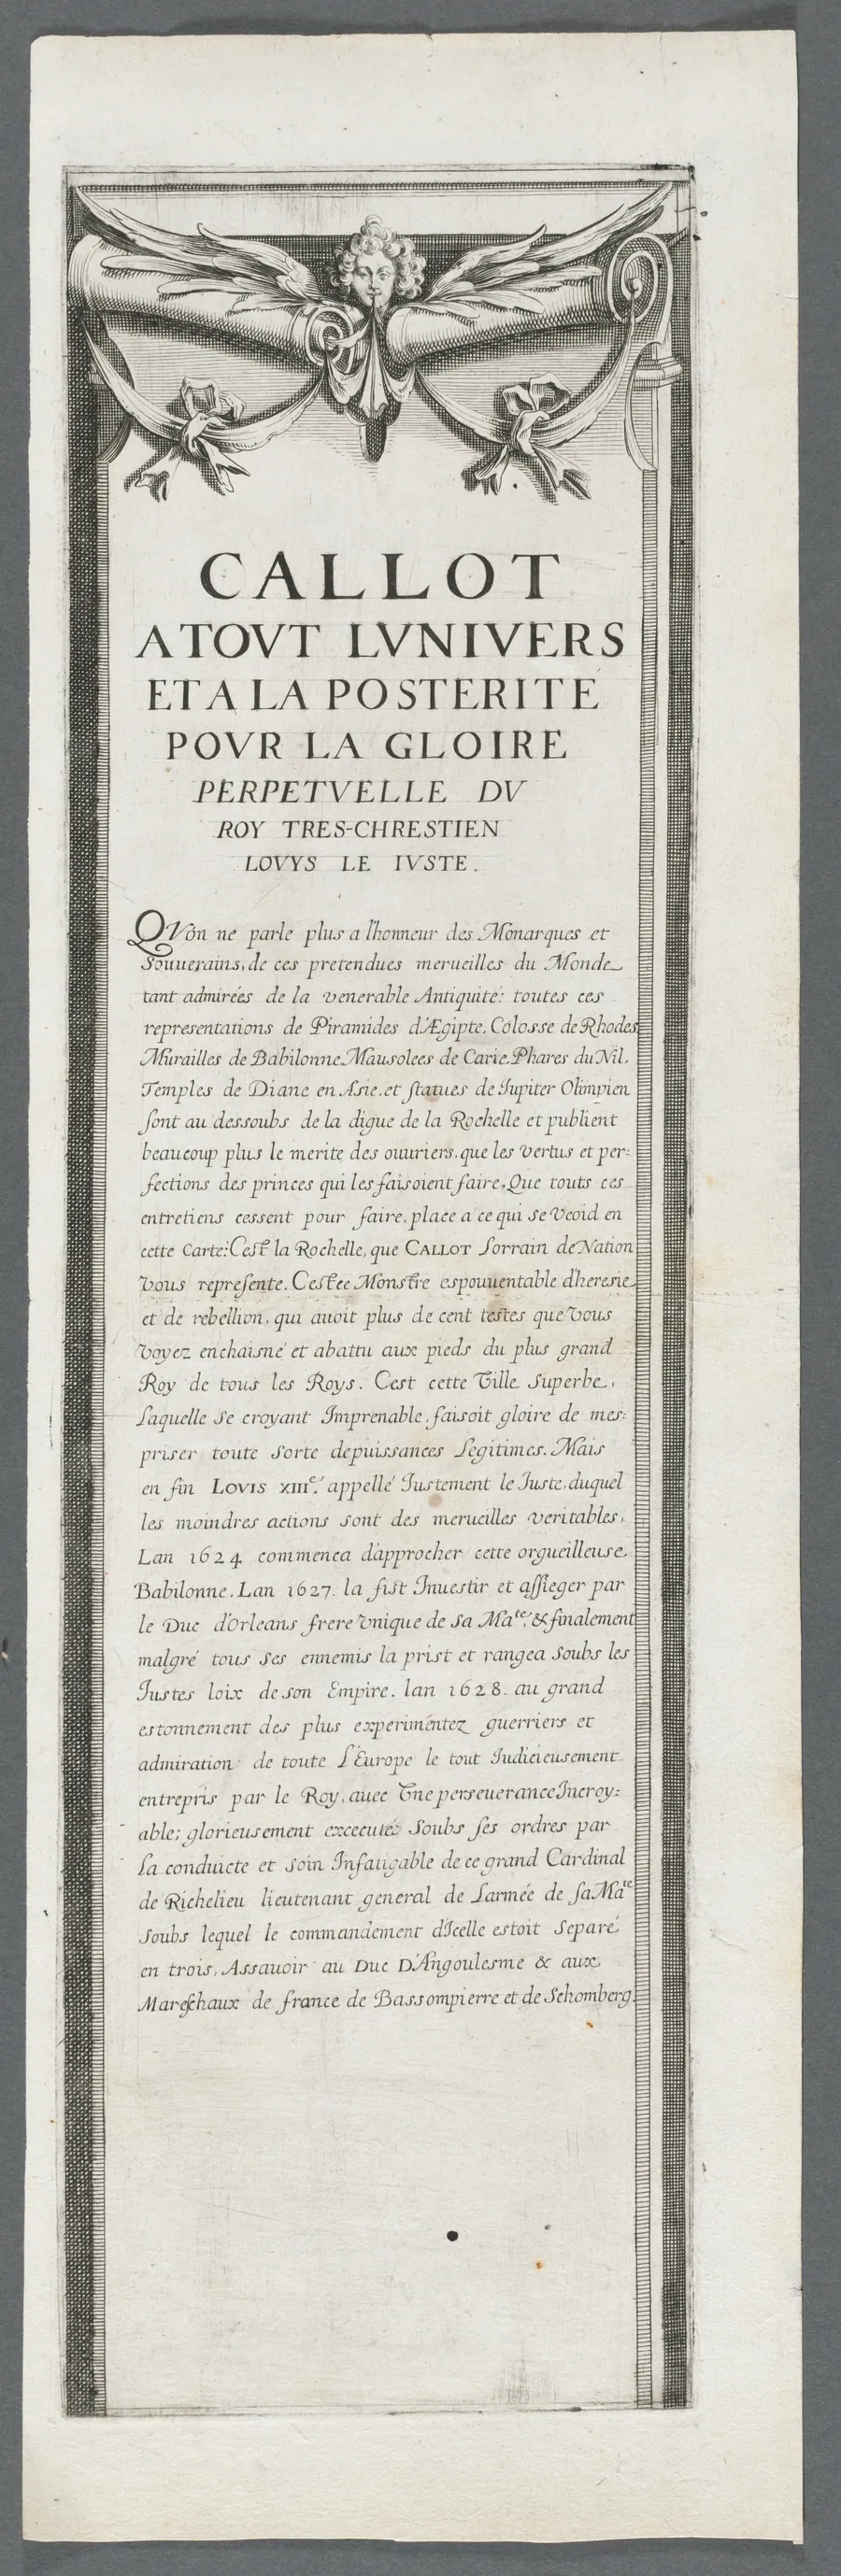 CALLOT
A TOVT LVNIVERS
ET A LA POSTERITÉ
POVR LA GLOIRE
PERPETVELLE DV
ROY TRES-CHRESTIEN
LOVYS LE IVSTE.
QVon ne parle plus a l'honneur des Monarques et
Souuerains, de ces pretendues merueilles du Monde
tant admirées de la venerable Antiquité: toutes ces
representations de Piramides d'Ægipte, Colosse de Rhodes
Murailles de Babilonne, Mausolees de Carie, Phares du Nil,
Temples de Diane en Asie, et statues de Jupiter Olimpien
sont au dessoubs de la digue de la Rochelle et publient
beaucoup plus le merite des ouuriers, que les vertus et per=
fections des princes qui les faisoient faire. Que touts ces
entretiens cessent pour faire place a ce qui se veoid en
cette Carte: C'est la Rochelle, que CALLOT Lorrain de Nation
vous represente. C'est ce Monstre espouuentable d'heresie
et de rebellion, qui auoit plus de cent testes que vous
voyez enchaisné et abattu aux pieds du plus grand
Roy de tous les Roys. C'est cette Ville Superbe,
Laquelle se croyant Imprenable, faisoit gloire de mes=
priser toute sorte de puissances Legitimes. Mais
en fin LOVIS XIIIe. appellé Justement le Juste, duquel
les moindres actions sont des merueilles veritables,
Lan 1624 commenca d'approcher cette orgueilleuse
Babilonne. Lan 1627. la fist Inuestir et assieger par
le Duc d'Orleans frere vnique de sa Mate. & finalement
malgré tous ses ennemis la prist et rangea soubs les
Justes loix de son Empire. lan 1628. au grand
estonnement des plus experimentez guerriers et
admiration de toute L'Europe le tout Judicieusement
entrepris par le Roy, auec Vne perseuerance Incroy=
able; glorieusement excecuté Soubs ses ordres par
La conduicte et soin Infatigable de ce grand Cardinal
de Richelieu lieutenant general de Larmée de sa Mate
soubs lequel le commandement d'Icelle estoit Separé
en trois, Assauoir au Duc D'Angoulesme & aux
Mareschaux de france de Bassompierre et de Schomberg.